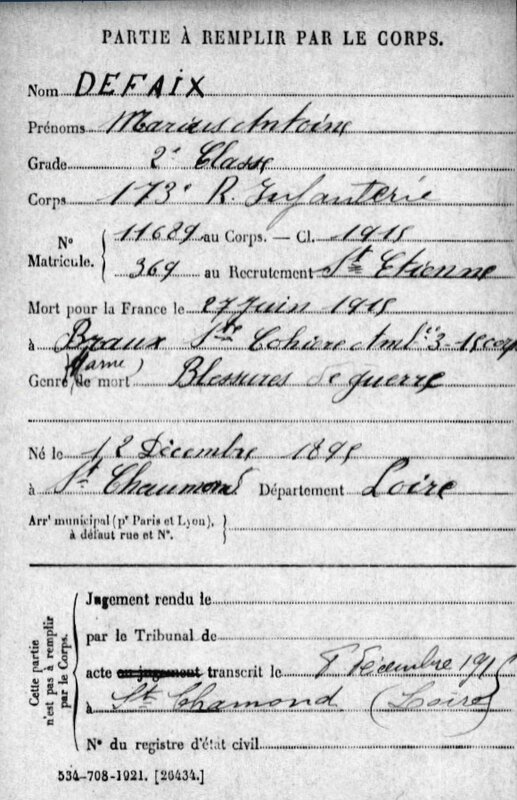 PARTIE À REMPLIR PAR LE CORPS.
Nom DEFAIX
Prénoms Marius Antoine
Grade 2e Classe
Corps 173e R. Infanterie
N° Matricule. { 11689 au Corps. — Cl. 1915
369 au Recrutement St Etienne
Mort pour la France le 27 Juin 1915
à Braux Ste Cohière Amb. 3-15 corps
(Marne)
Genre de mort Blessures de guerre
Né le 12 Décembre 1895
à St Chaumond Département Loire
Arrt municipal (pr Paris et Lyon), à défaut rue et N°. }
Cette partie n'est pas à remplir par le Corps. {
Jugement rendu le
par le Tribunal de
acte ou jugement transcrit le Décembre 1915
à St Chamond (Loire)
N° du registre d'état civil
534-708-1921. [26434.]